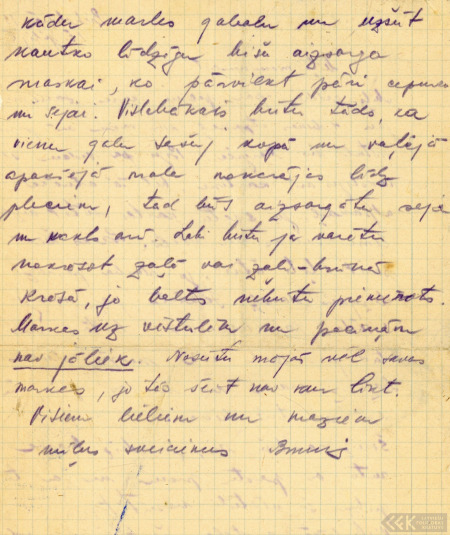 kādu marles gabalu un uzšūt
kautko līdzīgu bišu aizsarga
maskai, ko pārvilkt pāri cepurei
un sejai. Vislabākais būtu tāds, ka
vienu galu sašuj kopā un vaļējā
apakšējā mala nokarājas līdz
pleciem, tad būs aizsargāta seja
un kakls arī. Labi būtu ja varētu
nokrāsot zaļā vai zaļi-brūnā
krāsā, jo balts nebūtu piemērots.
Markas uz vēstulēm un paciņām
nav jāliek. Nosūtu mājā vēl savas
markas, jo tās šeit nav kur likt.
Visiem lieliem un maziem
mīļus sveicienus